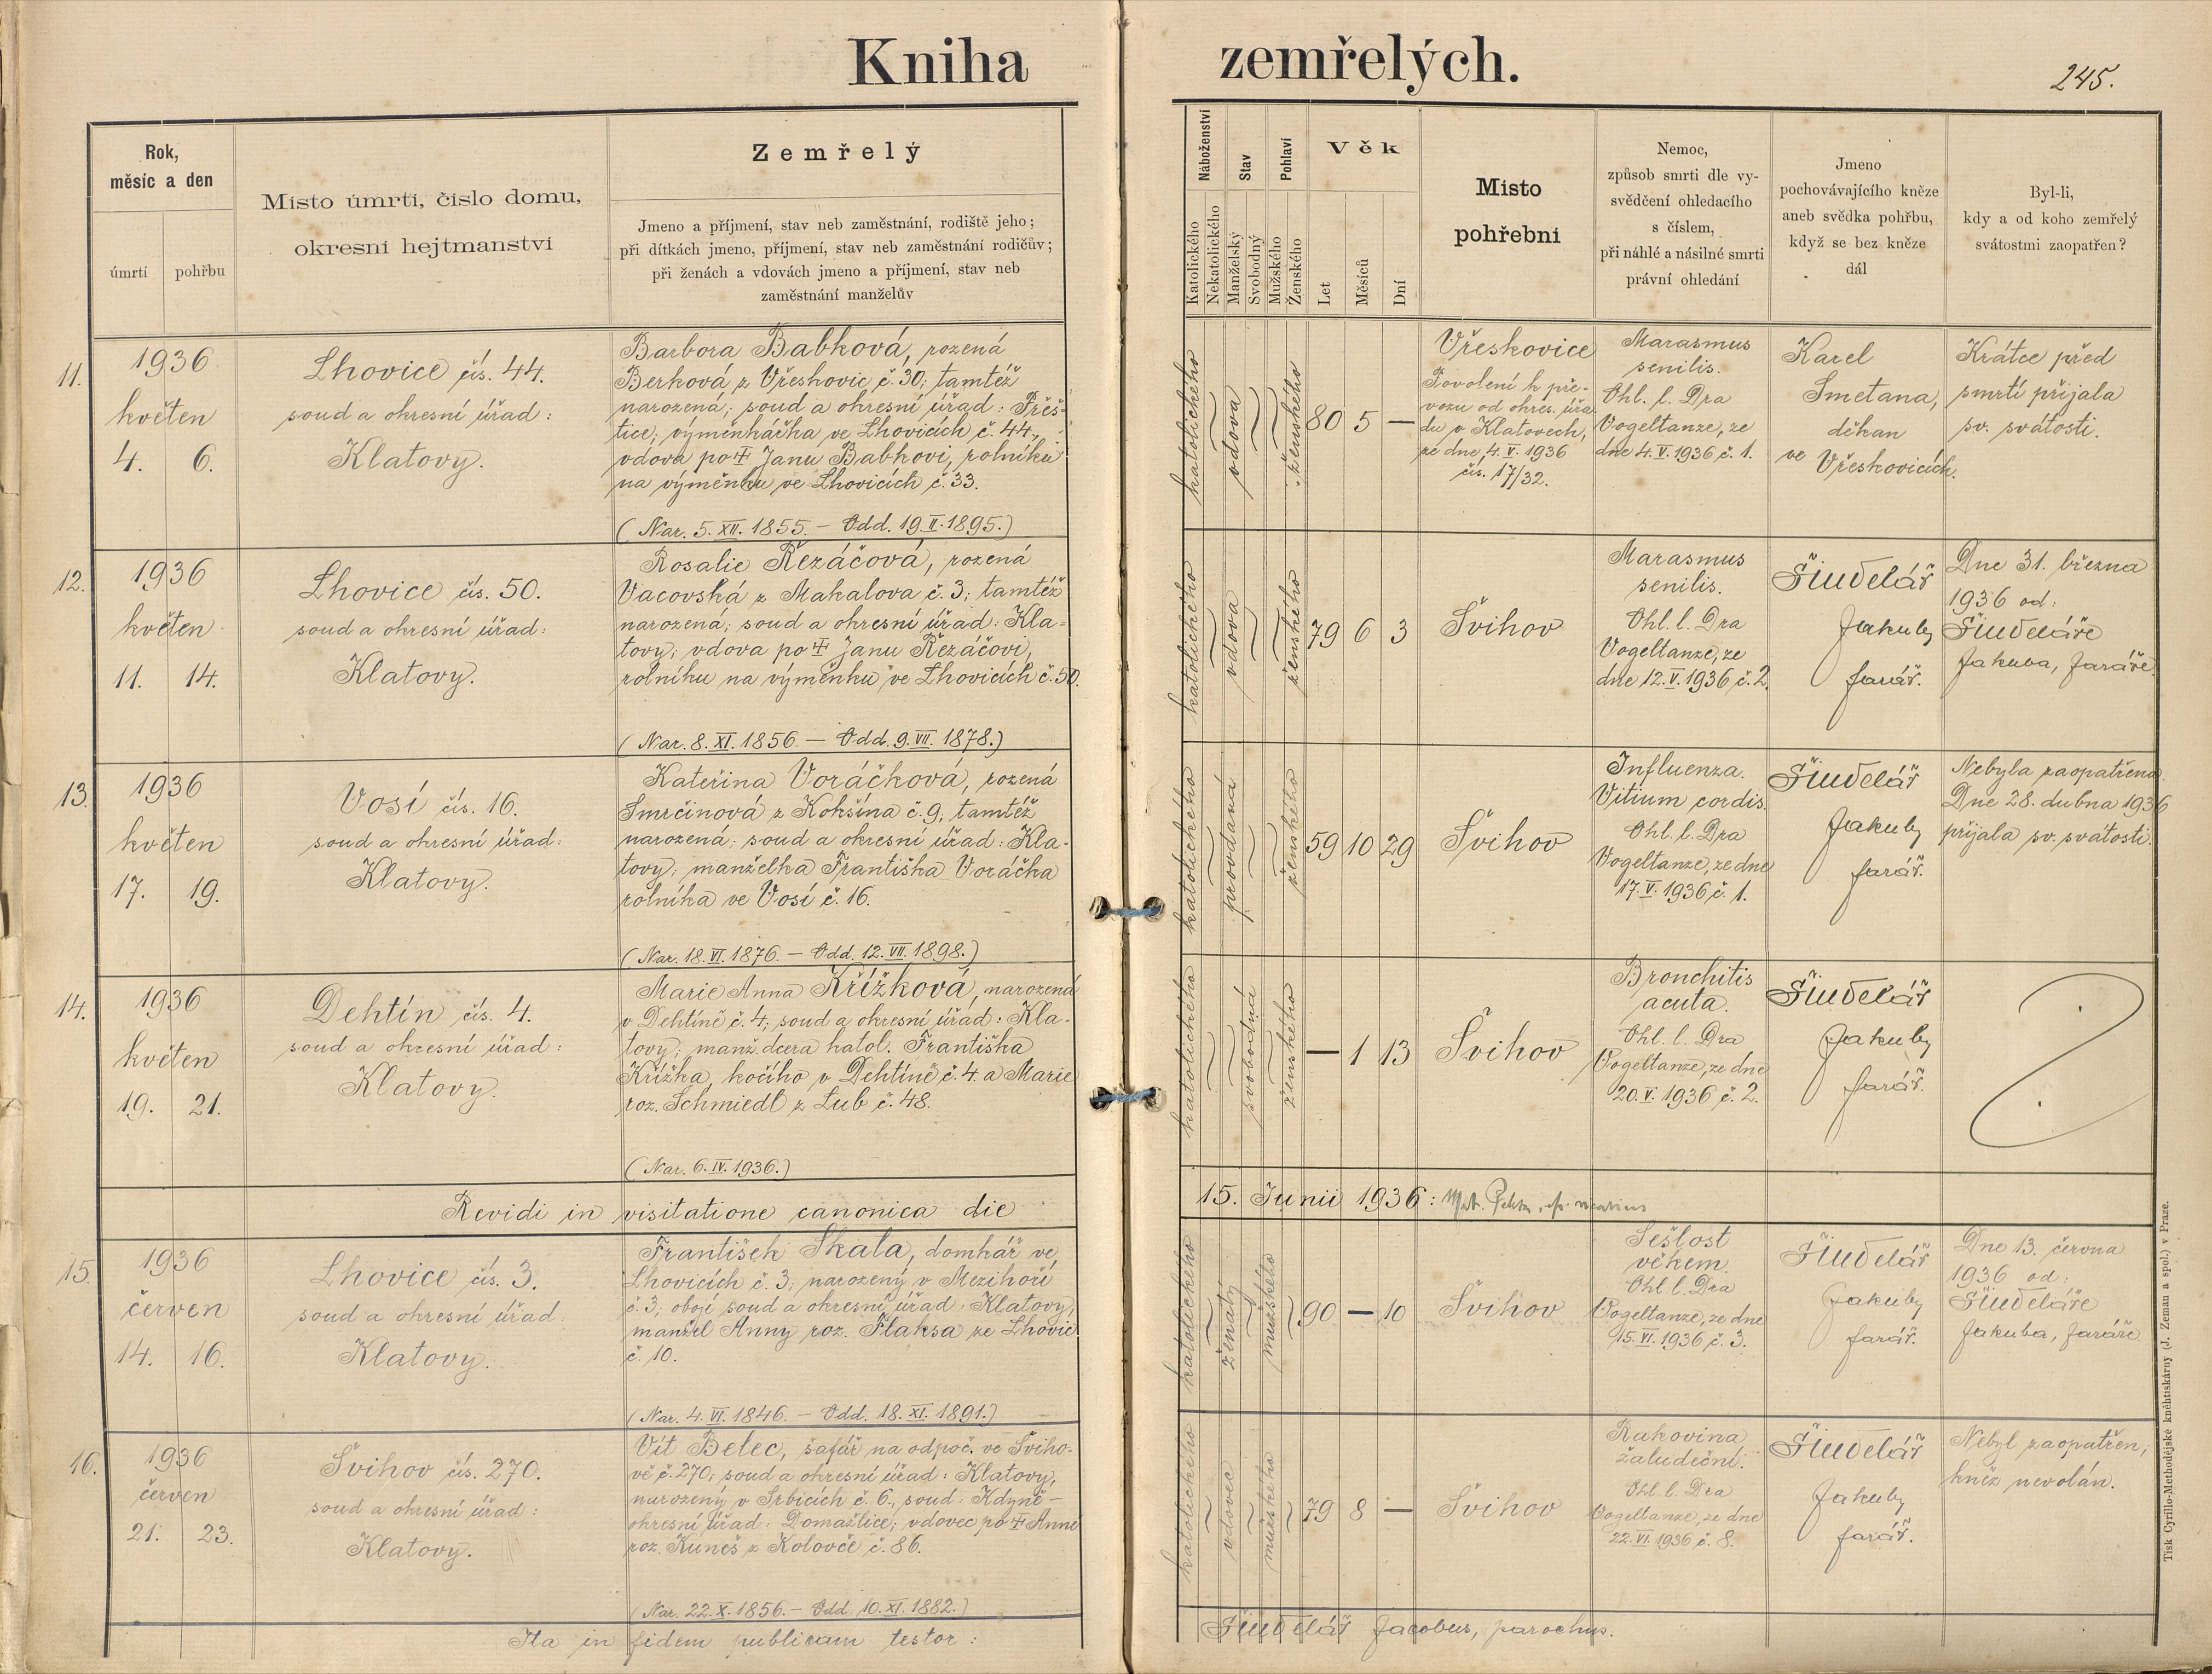 Kniha zemřelých.
245.
Rok,
měsíc a den
úmrtí
pohřbu
Místo úmrtí, číslo domu,
okresní hejtmanství
Zemřelý
Jmeno a příjmení, stav neb zaměstnání, rodiště jeho;
při dítkách jmeno, příjmení, stav neb zaměstnání rodičův;
při ženách a vdovách jmeno a příjmení, stav neb
zaměstnání manželův
Náboženství
Katolického
Nekatolického
Stav
Manželský
Svobodný
Pohlaví
Mužského
Ženského
Věk
Let
Měsíců
Dní
Místo
pohřební
Nemoc,
způsob smrti dle vy-
svědčení ohledacího
s číslem,
při náhlé a násilné smrti
právní ohledání
Jmeno
pochovávajícího kněze
aneb svědka pohřbu,
když se bez kněze
dál
Byl-li,
kdy a od koho zemřelý
svátostmi zaopatřen?
11.
1936
květen
4. 6.
Lhovice čís. 44.
soud a okresní úřad:
Klatovy.
Barbora Babková, rozená
Berková z Vřeskovic č. 30; tamtéž
narozená; soud a okresní úřad: Přeš-
tice; výměnkářka ve Lhovicích č. 44.,
vdova po † Janu Babkovi, rolníku
na výměnku ve Lhovicích č. 33.
(Nar. 5. XII. 1855. – Odd. 19. II. 1895.)
katolického
vdova
ženského
80 5 —
Vřeskovice
Povolení k pře-
vozu od okres. úřa-
du v Klatovech,
ze dne 4. V. 1936
čís. 17/32.
Marasmus
senilis.
Ohl. l. Dra
Vogeltanze, ze
dne 4. V. 1936 č. 1.
Karel
Smetana,
děkan
ve Vřeskovicích.
Krátce před
smrtí přijala
sv. svátosti.
12.
1936
květen
11. 14.
Lhovice čís. 50.
soud a okresní úřad:
Klatovy.
Rosalie Řezáčová, rozená
Vacovská z Makalova č. 3; tamtéž
narozená; soud a okresní úřad: Kla-
tovy; vdova po † Janu Řezáčovi,
rolníku na výměnku ve Lhovicích č. 50.
(Nar. 8. XI. 1856. – Odd. 9. VII. 1878.)
katolického
vdova
ženského
79 6 3
Švihov
Marasmus
senilis.
Ohl. l. Dra
Vogeltanze, ze
dne 12. V. 1936 č. 2.
Šindelář
Jakub,
farář.
Dne 31. března
1936 od:
Šindeláře
Jakuba, faráře
13.
1936
květen
17. 19.
Vosí čís. 16.
soud a okresní úřad:
Klatovy.
Kateřina Voráčková, rozená
Smrčinová z Kokšína č. 9; tamtéž
narozená; soud a okresní úřad: Kla-
tovy; manželka Františka Voráčka
rolníka ve Vosí č. 16.
(Nar. 18. VI. 1876. – Odd. 12. VII. 1898.)
katolického
provdaná
ženského
59 10 29
Švihov
Influenza.
Vitium cordis.
Ohl. l. Dra
Vogeltanze, ze dne
17. V. 1936 č. 1.
Šindelář
Jakub,
farář.
Nebyla zaopatřena.
Dne 28. dubna 1936
přijala sv. svátosti.
14.
1936
květen
19. 21.
Dehtín čís. 4.
soud a okresní úřad:
Klatovy.
Marie Anna Křížková, narozená
v Dehtíně č. 4; soud a okresní úřad: Kla-
tovy; manž. dcera katol. Františka
Křížka, kočího v Dehtíně č. 4. a Marie
roz. Schmiedl z Lub č. 48.
(Nar. 6. IV. 1936.)
katolického
svobodná
ženského
— 1 13
Švihov
Bronchitis
acuta.
Ohl. l. Dra
Vogeltanze, ze dne
20. V. 1936 č. 2.
Šindelář
Jakub,
farář.
Revidi in visitatione canonica die 15. Junii 1936:
15.
1936
červen
14. 16.
Lhovice čís. 3.
soud a okresní úřad
Klatovy.
František Skala, domkář ve
Lhovicích č. 3; narozený v Mezihoří
č. 3; obojí soud a okresní úřad: Klatovy,
manžel Anny roz. Flaksa ze Lhovic
č. 10.
(Nar. 4. VI. 1846. – Odd. 18. XI. 1891.)
katolického
ženatý
mužského
90 — 10
Švihov
Sešlost
věkem.
Ohl. l. Dra
Vogeltanze, ze dne
15. VI. 1936 č. 3.
Šindelář
Jakub,
farář.
Dne 13. června
1936 od:
Šindeláře
Jakuba, faráře
16.
1936
červen
21. 23.
Švihov čís. 270.
soud a okresní úřad:
Klatovy.
Vít Belec, šafář na odpoč. ve Šviho-
vě č. 270; soud a okresní úřad: Klatovy,
narozený v Srbicích č. 6., soud: Kdyně –
okresní úřad: Domažlice; vdovec po † Anně
roz. Kuneš z Koloveč č. 86.
(Nar. 22. X. 1856. – Odd. 10. XI. 1882.)
katolického
vdovec
mužského
79 8 —
Švihov
Rakovina
žaludeční.
Ohl. l. Dra
Vogeltanze, ze dne
22. VI. 1936 č. 8.
Šindelář
Jakub,
farář.
Nebyl zaopatřen,
kněz nevolán.
Ita in fidem publicam testor: Šindelář Jacobus, parochus.
Tisk Cyrillo-Methodějské knihtiskárny (J. Zeman a spol.) v Praze.